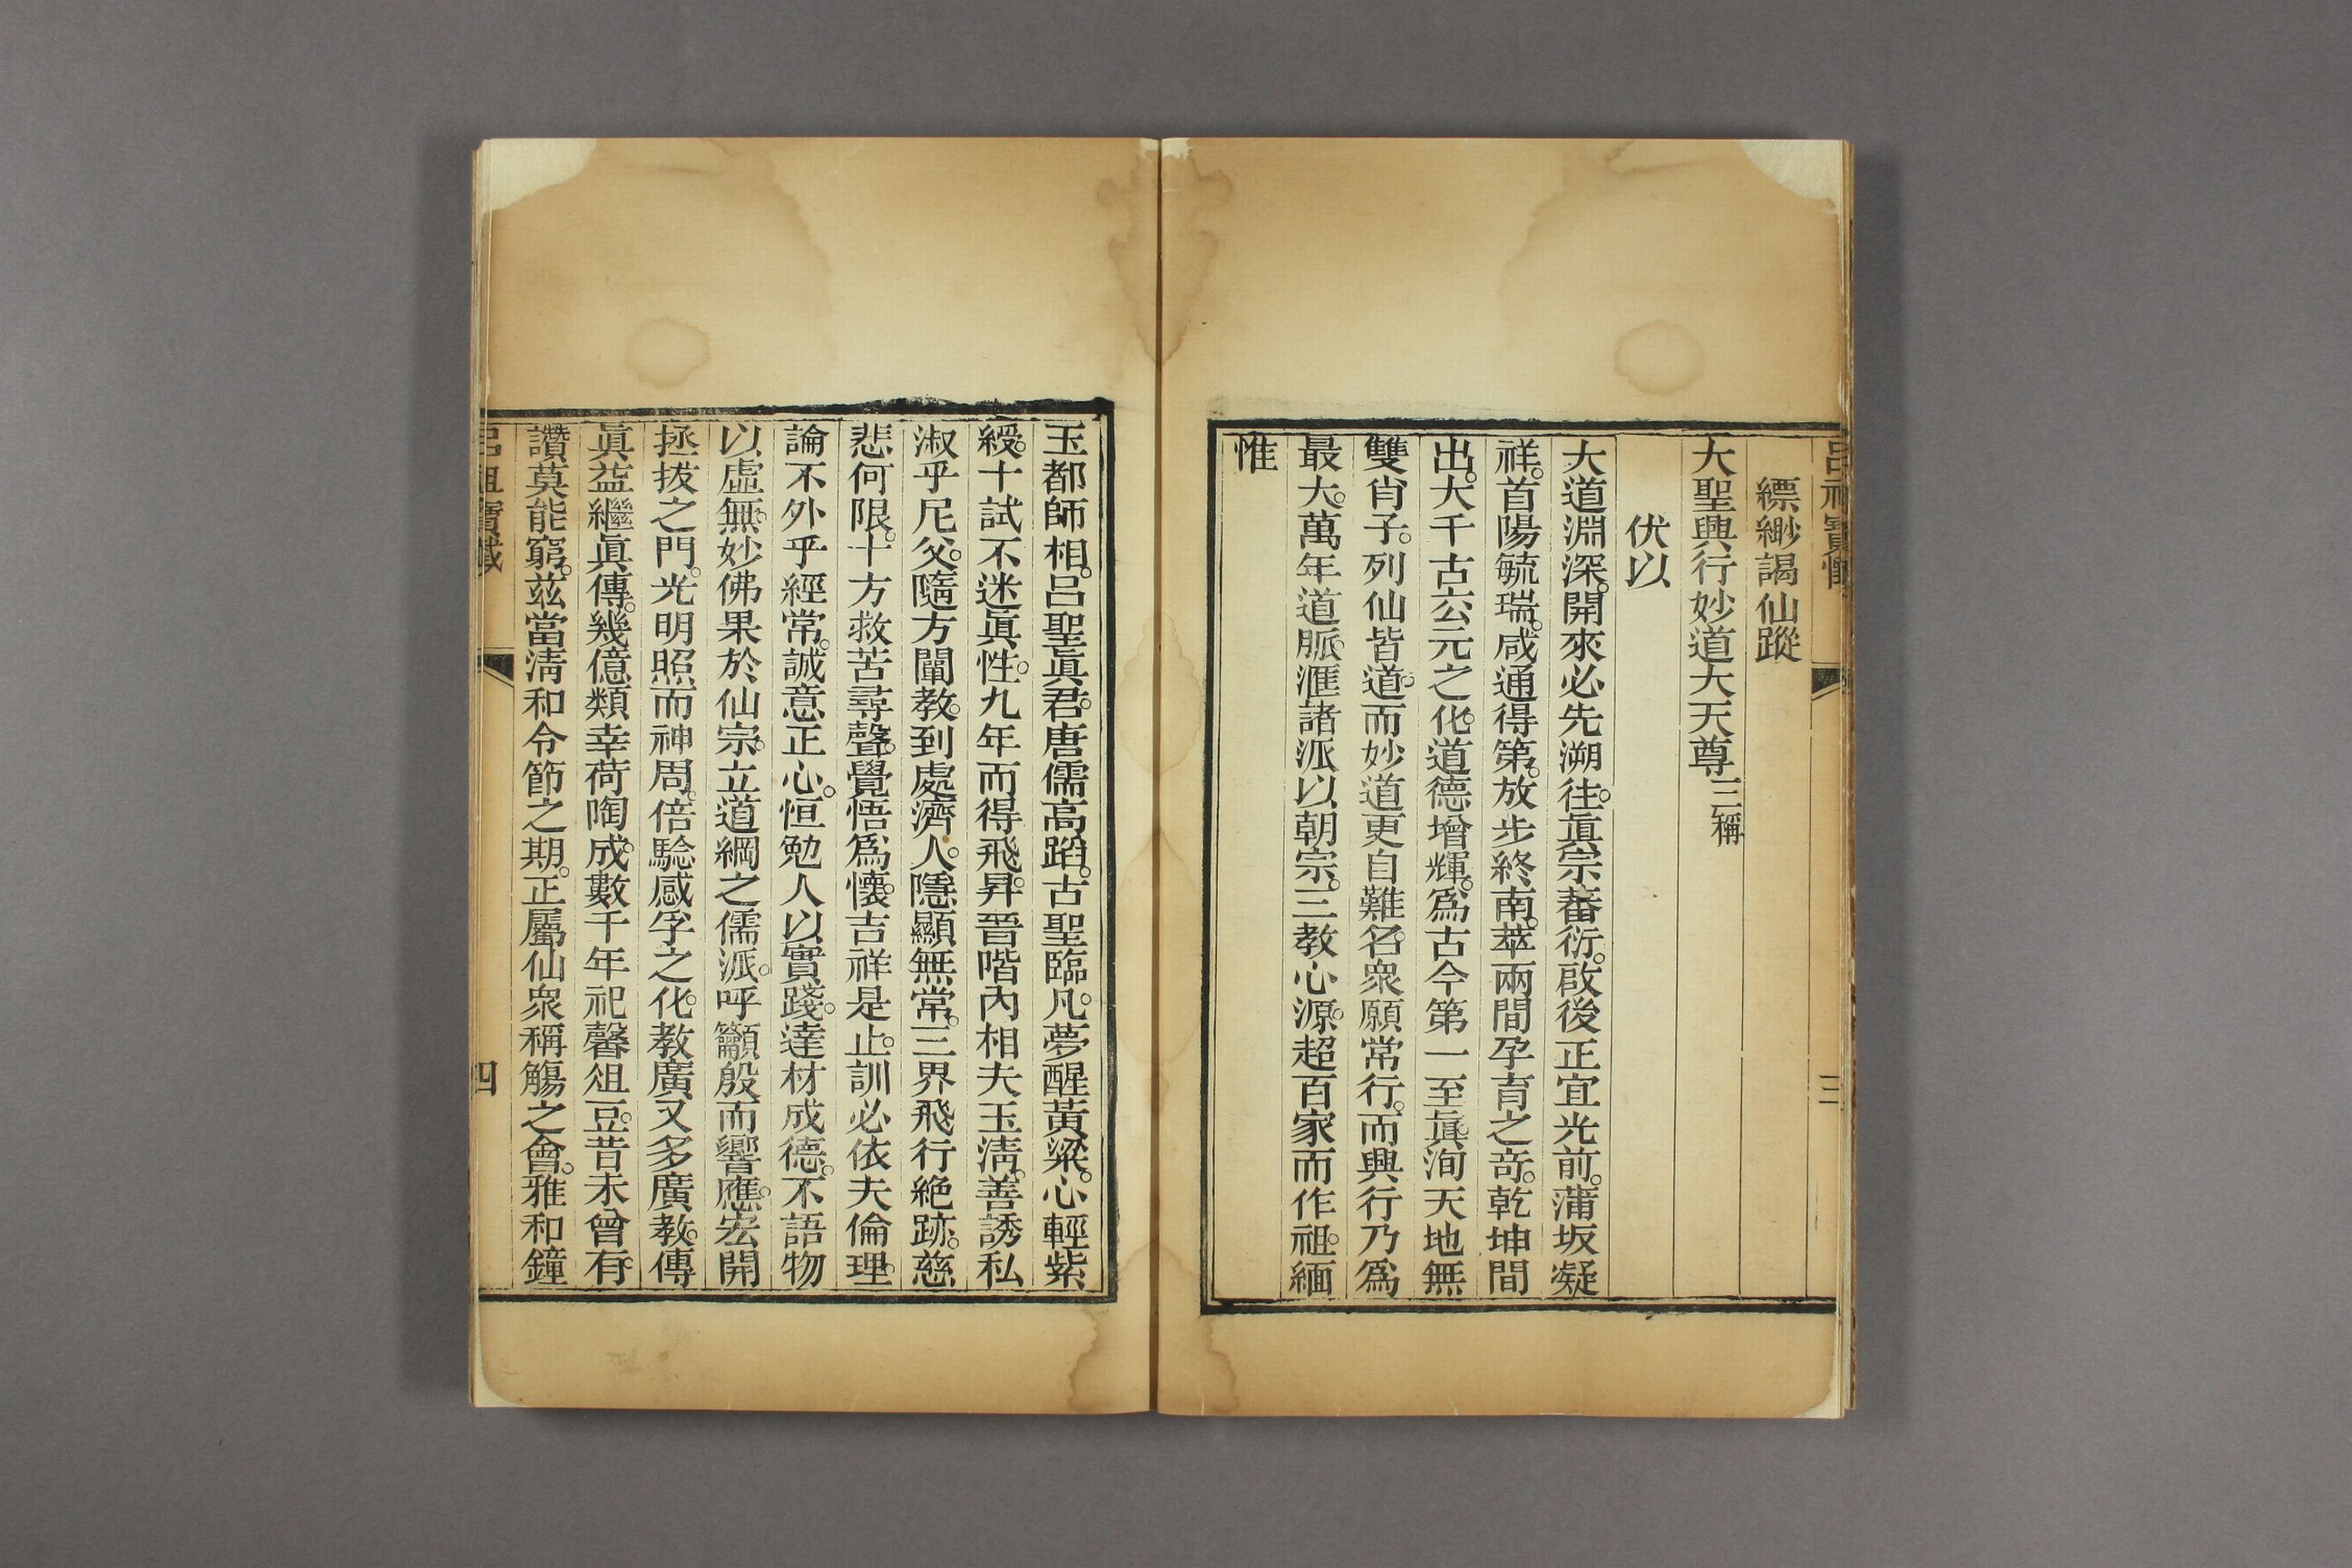 呂祖寶懺
三
縹緲謁仙蹤
大聖興行妙道大天尊三稱
伏以
大道淵深。開來必先溯往。眞宗蕃衍。啟後正宜光前。蒲坂凝
祥。首陽毓瑞。咸通得第。放步終南。萃兩間孕育之竒。乾坤間
出。大千古玄元之化。道德增輝。爲古今第一至眞。洵天地無
雙肖子。列仙皆道。而妙道更自難名。衆願常行。而興行乃爲
最大。萬年道脈。滙諸派以朝宗。三教心源。超百家而作祖。緬
惟
玉都師相。呂聖眞君。唐儒高蹈。古聖臨凡。夢醒黃粱。心輕紫
綬。十試不迷眞性。九年而得飛昇。晉階內相夫玉淸。善誘私
淑乎尼父。隨方闡教。到處濟人。隱顯無常。三界飛行絶跡。慈
悲何限。十方救苦尋聲。覺悟爲懷。吉祥是止。訓必依夫倫理。
論不外乎經常。誠意正心。恒勉人以實踐。達材成德。不語物
以虛無。妙佛果於仙宗。立道綱之儒派。呼籲殷而響應。宏開
拯拔之門。光明照而神周。倍騐感孚之化。教廣又多廣教。傳
眞益繼眞傳。幾億類幸荷陶成。數千年祀馨俎豆。昔未曾有。
讚莫能窮。兹當淸和令節之期。正屬仙衆稱觴之會。雅和鐘
呂祖寶懺
四